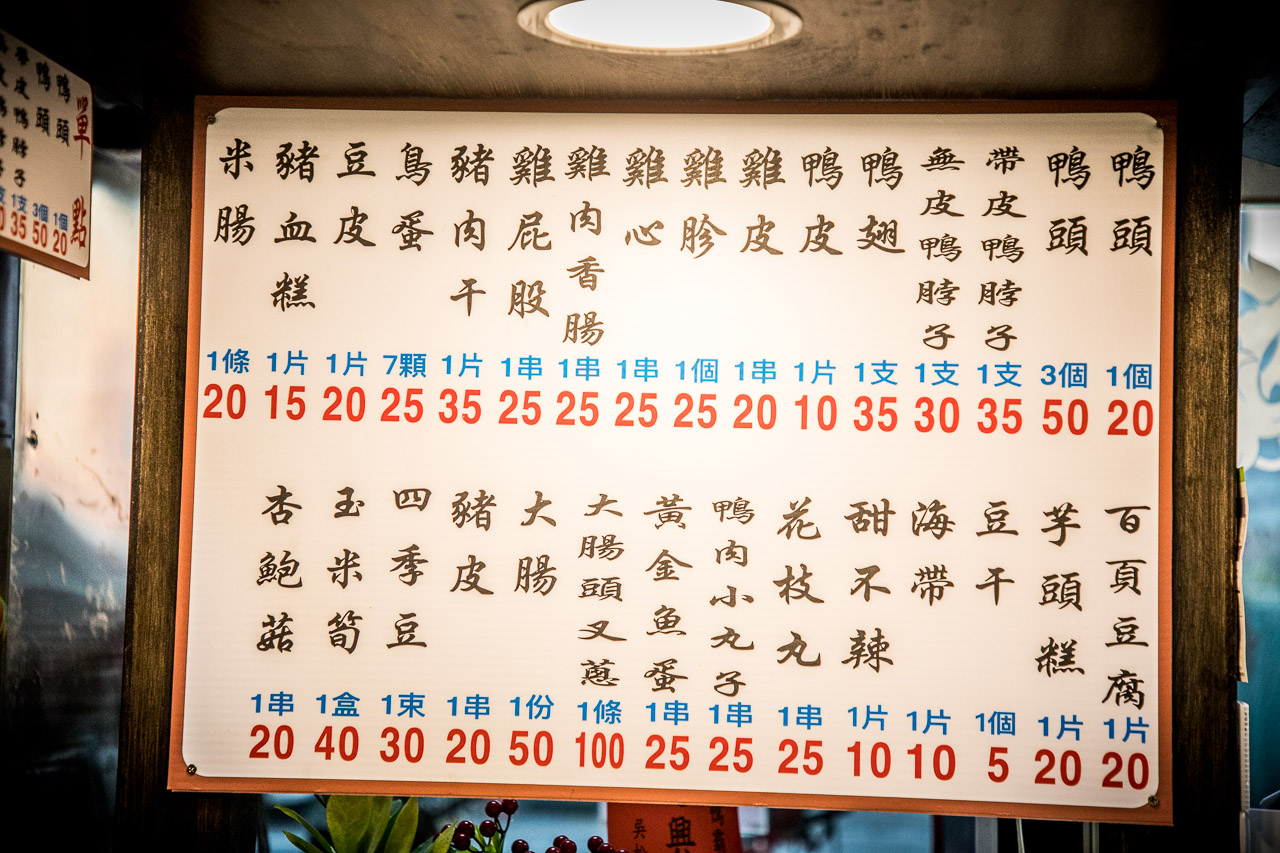 鴨頭
1個
20
鴨頭
3個
50
帶皮鴨脖子
1支
35
無皮鴨脖子
1支
30
鴨翅
1支
35
鴨皮
1片
10
雞皮
1串
20
雞胗
1個
25
雞心
1串
25
雞肉香腸
1串
25
雞屁股
1串
25
豬肉干
1片
35
鳥蛋
7顆
25
豆皮
1片
20
豬血糕
1片
15
米腸
1條
20
百頁豆腐
1片
20
芋頭糕
1片
20
豆干
1個
5
海帶
1片
10
甜不辣
1片
10
花枝丸
1串
25
鴨肉小丸子
1串
25
黃金魚蛋
1串
25
大腸頭叉蔥
1條
100
大腸
1份
50
豬皮
1串
20
四季豆
1束
30
玉米筍
1盒
40
杏鮑菇
1串
20
單點
鴨頭
1個
20
鴨頭
3個
50
帶皮鴨脖子
1支
35
興